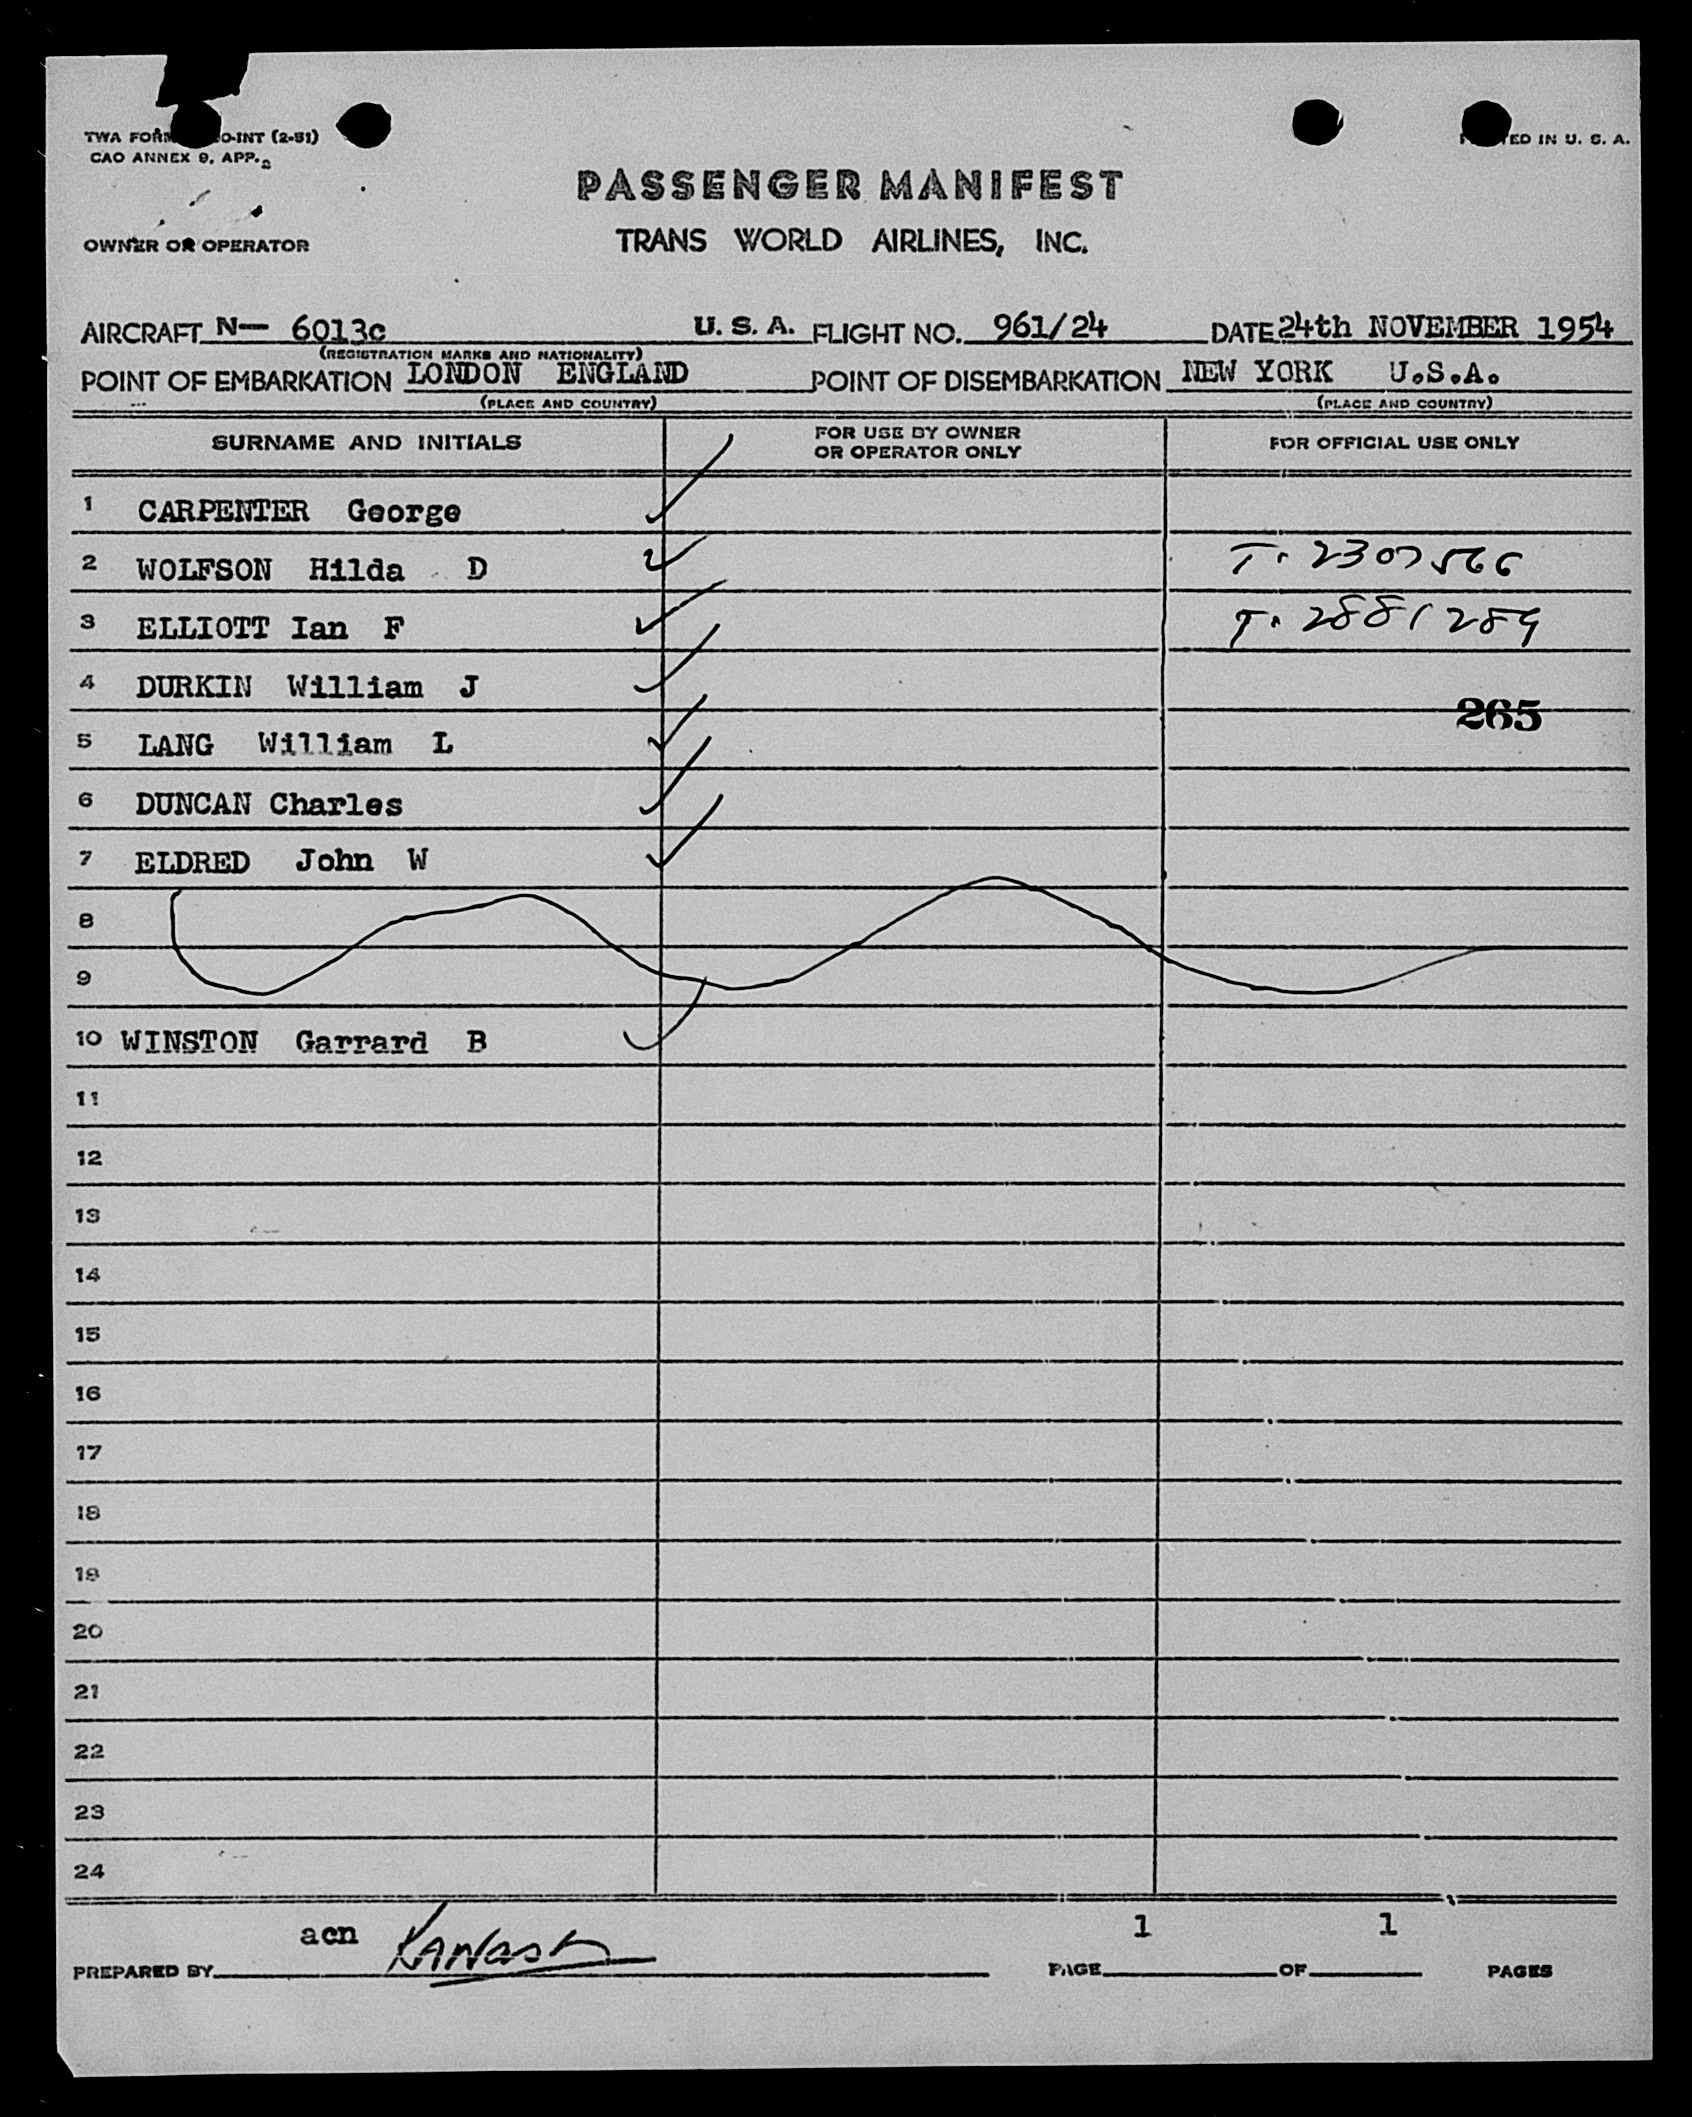 TWA FORM O-INT (2-51)
CAO ANNEX 9, APP. 2
ED IN U. S. A.
PASSENGER MANIFEST
OWNER OR OPERATOR
TRANS WORLD AIRLINES, INC.
AIRCRAFT N— 6013c U. S. A. FLIGHT NO. 961/24 DATE 24th NOVEMBER 1954
(REGISTRATION MARKS AND NATIONALITY)
POINT OF EMBARKATION LONDON ENGLAND POINT OF DISEMBARKATION NEW YORK U.S.A.
(PLACE AND COUNTRY) (PLACE AND COUNTRY)
SURNAME AND INITIALS FOR USE BY OWNER OR OPERATOR ONLY FOR OFFICIAL USE ONLY
1 CARPENTER George
2 WOLFSON Hilda D T. 2307566
3 ELLIOTT Ian F T. 2881289
4 DURKIN William J
265
5 LANG William L
6 DUNCAN Charles
7 ELDRED John W
8
9
10 WINSTON Garrard B
11
12
13
14
15
16
17
18
19
20
21
22
23
24
PREPARED BY acn PAGE 1 OF 1 PAGES